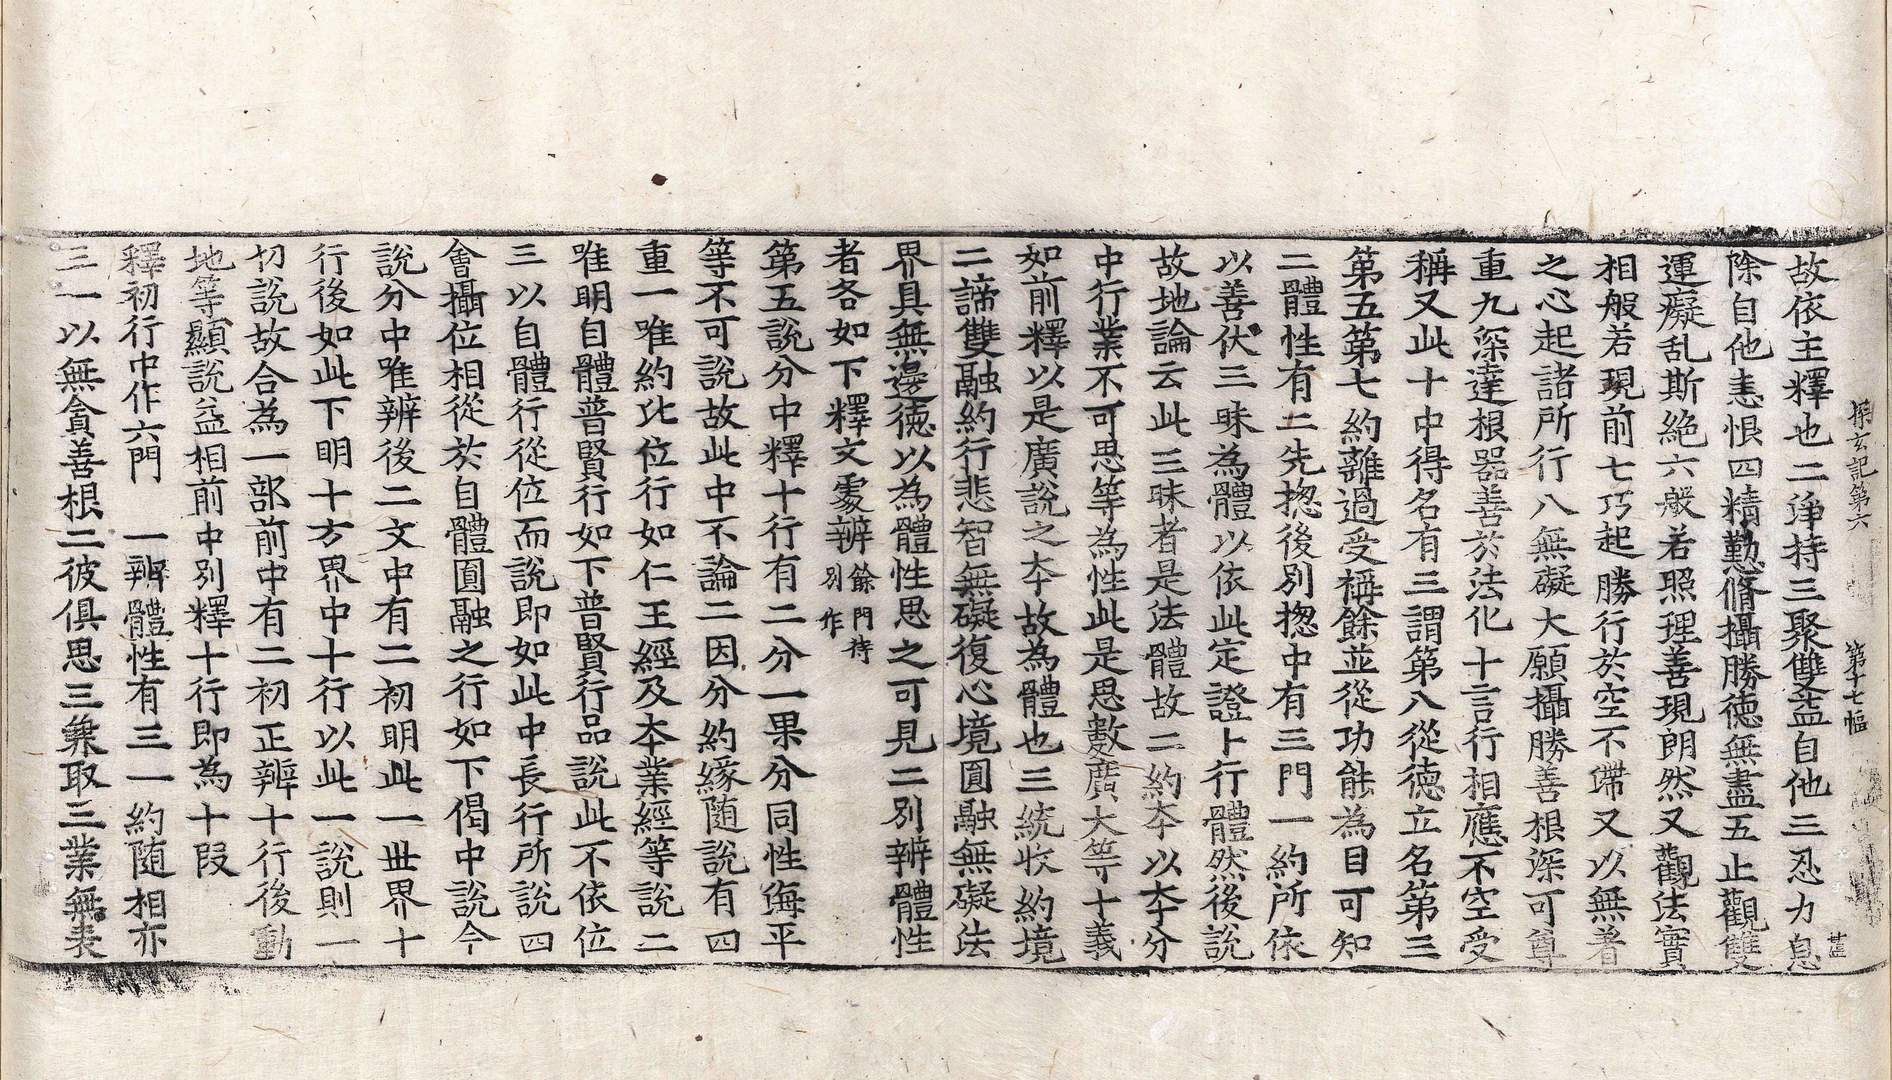 探玄記第六　第十七幅
故依主釋也二淨持三聚雙益自他三忍力息
除自他恚恨四精勤脩攝勝德無盡五止觀雙
運癡乱斯絶六般若照理善現朗然又觀法實
相般若現前七巧起勝行於空不滯又以無著
之心起諸所行八無礙大願攝勝善根深可尊
重九深達根器善於法化十言行相應不空受
稱又此十中得名有三謂第八從德立名第三
第五第七約離過受稱餘並從功能為目可知
二體性有二先揔後別揔中有三門一約所依
以善伏三昧為體以依此定證十行體然後說
故地論云此三昧者是法體故二約本以本分
中行業不可思等為性此是思數廣大等十義
如前釋以是廣說之本故為體也三統收約境
二諦雙融約行悲智無礙復心境圓融無礙法
界具無邊德以為體性思之可見二別辨體性
者各如下釋文處辨餘門待別作
第五說分中釋十行有二分一果分同性海平
等不可說故此中不論二因分約緣隨說有四
重一唯約比位行如仁王經及本業經等說二
唯明自體普賢行如下普賢行品說此不依位
三以自體行從位而說即如此中長行所說四
會攝位相從於自體圓融之行如下偈中說今
說分中唯辨後二文中有二初明此一世界十
行後如此下明十方界中十行以此一說則一
切說故合為一部前中有二初正辨十行後動
地等顯說益相前中別釋十行即為十段
釋初行中作六門　一辨體性有三一約随相亦
三一以無貪善根二彼俱思三兼取三業無表